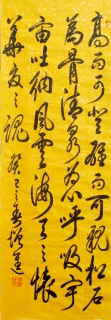 高而可登雄而可親松石
為骨清泉為心呼吸宇
宙吐納風雲海天之懷
華夏之魂 癸巳